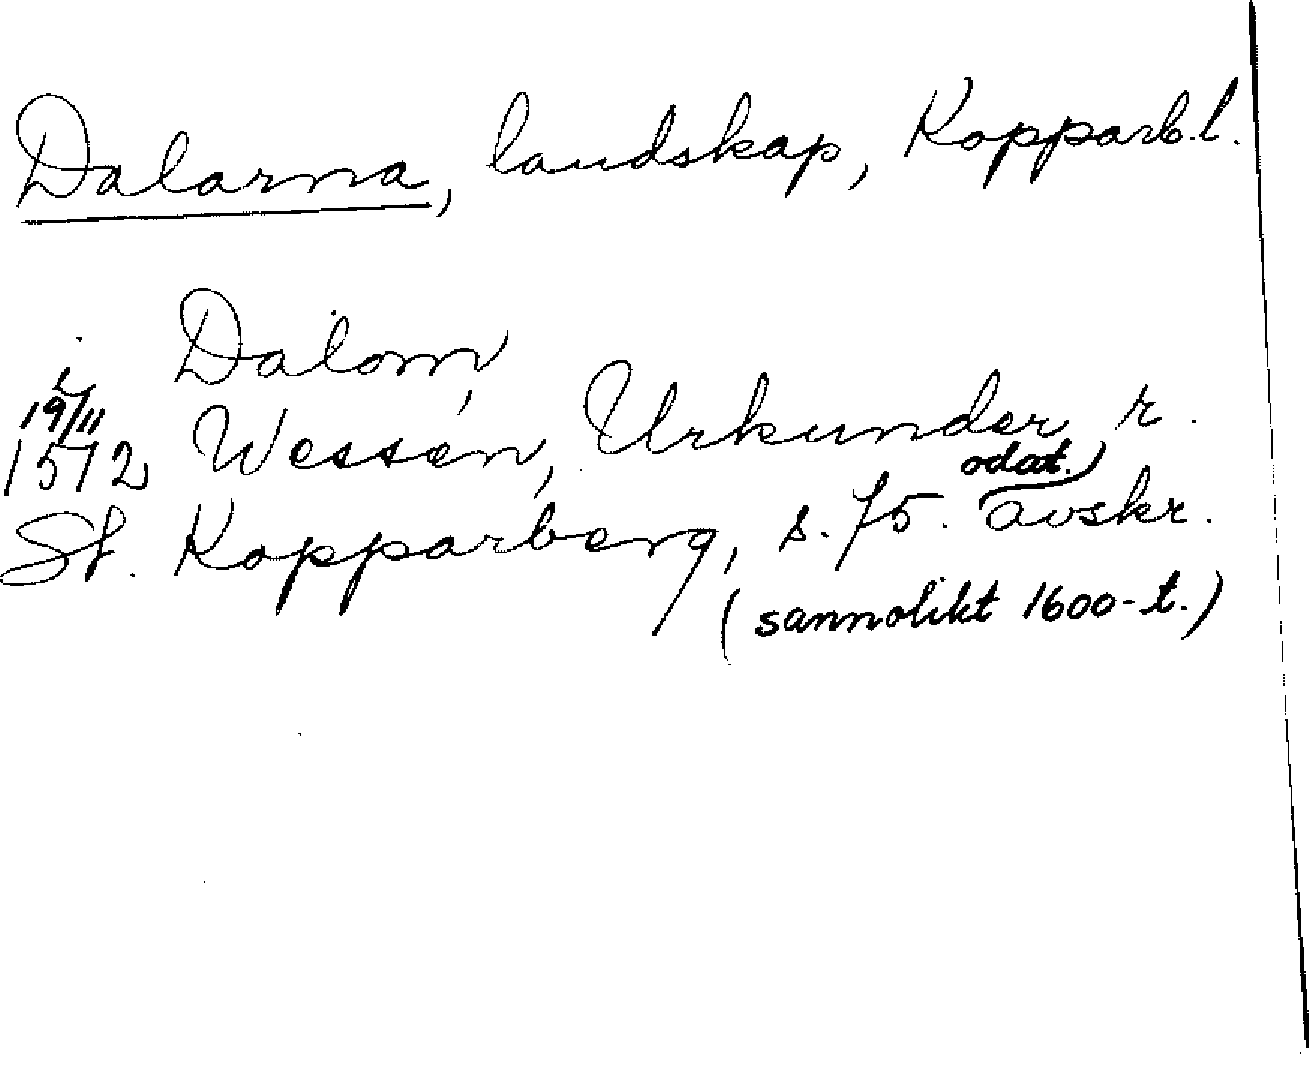 Dalarna, landskap, Kopparb.l.
Dalom,
19/11
1572 Wessén, Urkunder r.
odat.
St. Kopparberg, s. 75. avskr.
(sannolikt 1600-t.)